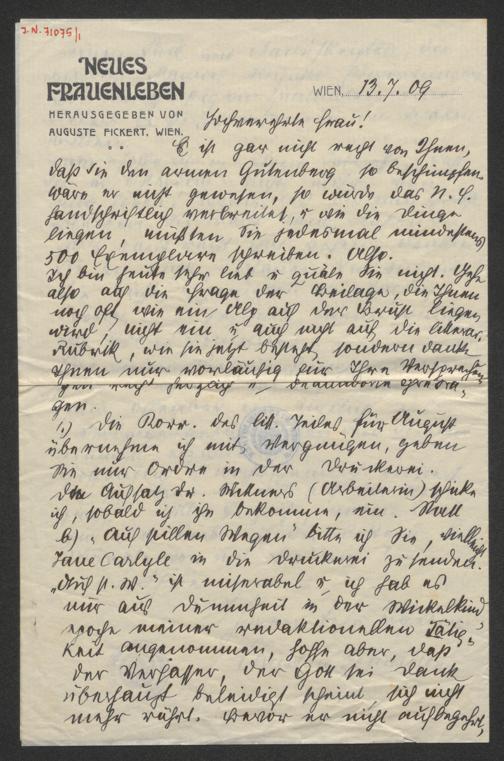 J.N. 71075/1
NEUES
FRAUENLEBEN
HERAUSGEGEBEN VON
AUGUSTE FICKERT, WIEN.
WIEN, 13.7.09
Hochverehrte Frau!
Es ist gar nicht recht von Ihnen,
daß Sie den armen Gutenberg so beschimpfen.
Wäre er nicht gewesen, so würde das N. F.
handschriftlich verbreitet, u wie die Dinge
liegen, müßten Sie jedesmal mindestens
500 Exemplare schreiben. Also.
Ich bin heute sehr lieb u quäle Sie nicht. Gehe
also auf die Frage der Beilage, die Ihnen
noch oft wie ein Alp auf der Brust liegen
wird, nicht ein u auch nicht auf die literar.
Rubrik, wie sie jetzt besteht, sondern danke
Ihnen nur vorläufig für Ihre Versprechun-
gen recht herzlich u
gen.
1.) Die Korr. des lit. Teiles für August
übernehme ich mit Vergnügen, geben
Sie nur Ordre in der Druckerei.
Den Aufsatz Dr. (Arbeiterin) schicke
ich, sobald ich ihn bekomme, ein. Statt
b) „Auf stillen Wegen" bitte ich Sie, vielleicht
Jane Carlyle in die Druckerei zu senden.
„Auf st. W." ist miserabel u ich hab es
nur aus Dummheit in der Wickelkind-
epoche meiner redaktionellen Tätig-
keit angenommen, hoffe aber, daß
der Verfasser, der Gott sei Dank
überhaupt beleidigt scheint, sich nicht
mehr rührt. Bevor er nicht aufbegehrt,